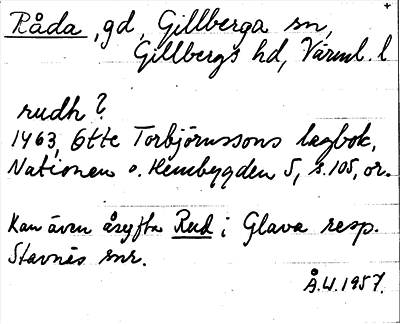 Råda, gd, Gillberga sn,
Gillbergs hd, Värml. l
rudh?
1463, Otte Torbjörnssons lagbok,
Nationen o. Hembygden 5, s. 105, or.
Kan även åsyfta Rud i Glava resp.
Stavnäs snr.
Å.W.1957.